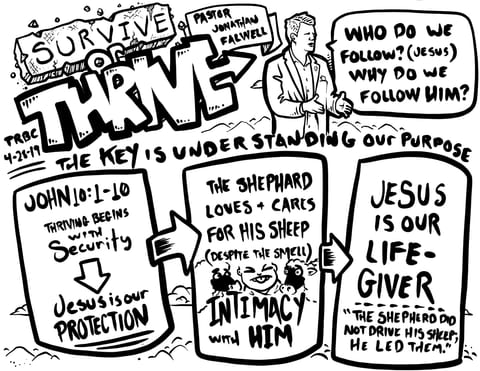 SURVIVE
OR
THRIVE
PASTOR
JONATHAN
FALWELL
WHO DO WE
FOLLOW? (JESUS)
WHY DO WE
FOLLOW HIM?
TRBC
4-28-19
THE KEY IS UNDERSTANDING OUR PURPOSE
JOHN 10:1-10
THRIVING BEGINS
WITH
Security
Jesus is our
PROTECTION
THE SHEPHARD
LOVES + CARES
FOR HIS SHEEP
(DESPITE THE SMELL)
INTIMACY
WITH HIM
JESUS
IS OUR
LIFE-
GIVER
"THE SHEPHERD DID
NOT DRIVE HIS SHEEP;
HE LED THEM."